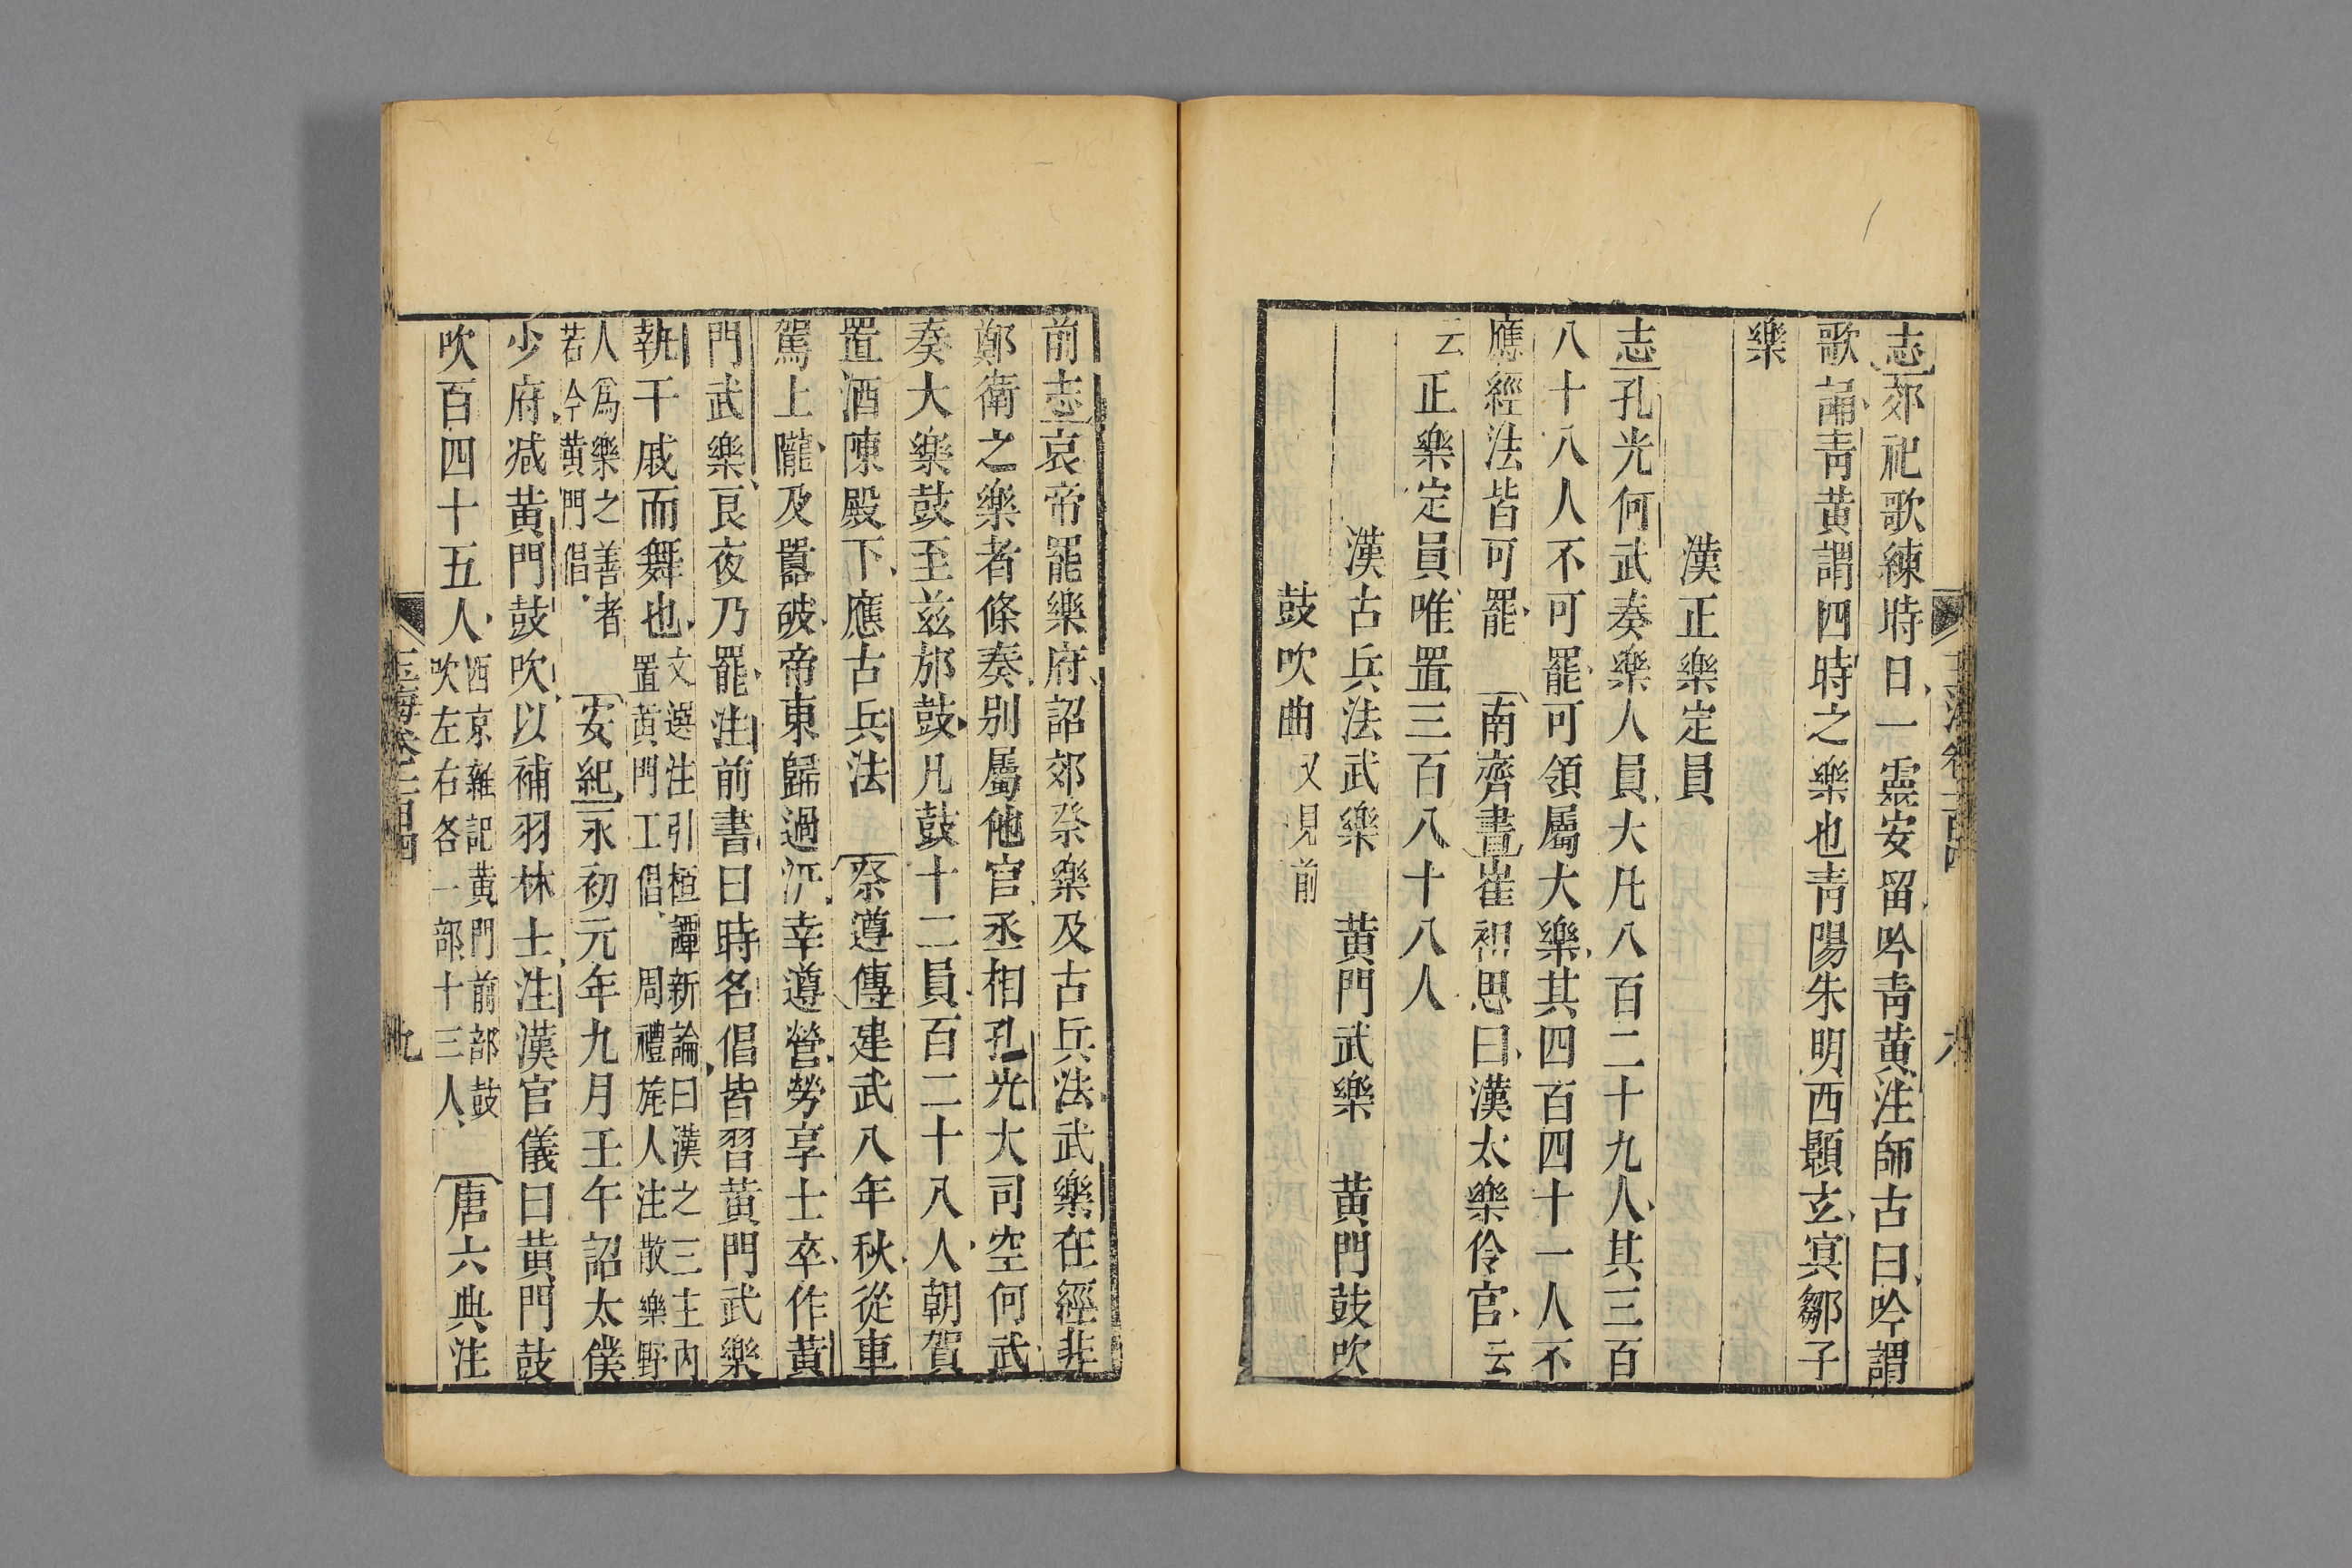 志郊祀歌練時日一靈安留吟青黄注師古曰吟謂
歌誦青黄謂四時之樂也青陽朱明西顥玄冥鄒子
樂
漢正樂定員
志孔光何武奏樂人員大凡八百二十九人其三百
八十八人不可罷可領屬大樂其四百四十一人不
應經法皆可罷 南齊書崔祖思曰漢太樂伶官云
云正樂定員唯置三百八十八人
漢古兵法武樂 黄門武樂 黄門鼓吹
鼓吹曲又見前
前志哀帝罷樂府詔郊祭樂及古兵法武樂在經非
鄭衛之樂者條奏别屬他官丞相孔光大司空何武
奏大樂鼓至兹邡鼓凡鼓十二員百二十八人朝賀
置酒陳殿下應古兵法 祭遵傳建武八年秋從車
駕上隴及囂破帝東歸過汧幸遵營勞享士卒作黄
門武樂良夜乃罷注前書曰時名倡皆習黄門武樂
執干戚而舞也文選注引桓譚新論曰漢之三主内
置黄門工倡 周禮旄人注散樂野
人爲樂之善者
若今黄門倡 安紀永初元年九月壬午詔太僕
少府减黄門鼓吹以補羽林士注漢官儀曰黄門鼓
吹百四十五人西京雜記黄門前部鼓
吹左右各一部十三人 唐六典注
玉海卷一百四
九